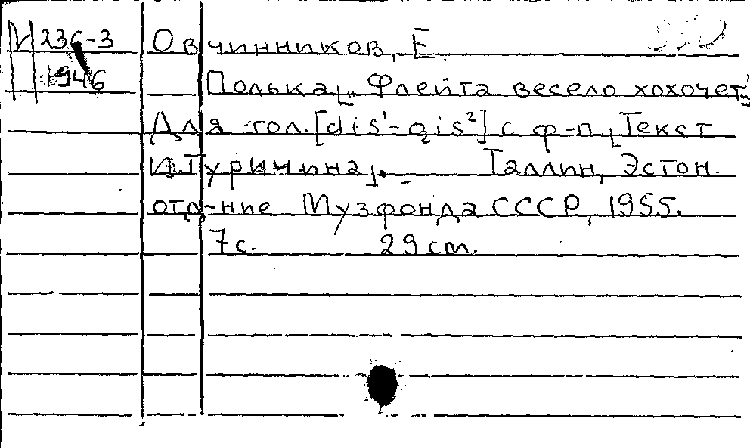 М 236-3 Овчинников, Е.
1946 Полька „Флейта весело хохочет“
Для гол. [dis¹-gis²] с ф-п. [Текст
И. Туричина]. - Таллин, Эстон.
отд-ние Музфонда СССР, 1955.
7 с. 29 cm.